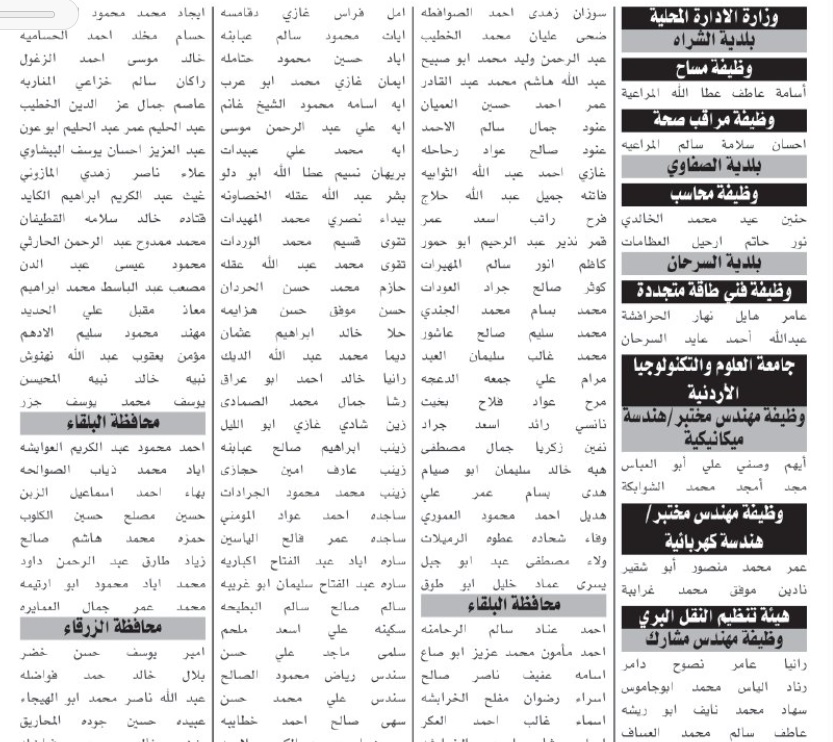 وزارة الادارة المحلية
بلدية الشراه
وظيفة مساح
أسامة عاطف عطا الله المراعية
وظيفة مراقب صحة
احسان سلامة سالم المراعيه
بلدية الصفاوي
وظيفة محاسب
حنين عيد محمد الخالدي
نور حاتم ارحيل العظامات
بلدية السرحان
وظيفة فني طاقة متجددة
عامر هايل نهار الحرافشة
عبدالله أحمد عايد السرحان
جامعة العلوم والتكنولوجيا
الأردنية
وظيفة مهندس مختبر/هندسة
ميكانيكية
أيهم وصفي علي أبو العباس
مجد أمجد محمد الشوابكة
وظيفة مهندس مختبر/
هندسة كهربائية
عمر محمد منصور أبو شقير
نادين موفق محمد غرايبة
هيئة تنظيم النقل البري
وظيفة مهندس مشارك
رانيا عامر نصوح دامر
رناد الياس محمد ابوجاموس
سهاد محمد نايف ابو ريشه
عاطف سالم محمد العساف
سوزان زهدي احمد الصوافطه
ضحى عليان محمد الخطيب
عبد الرحمن وليد محمد ابو صبيح
عبد الله هاشم محمد عبد القادر
عمر احمد حسين العميان
عنود جمال سالم الاحمد
عنود صالح عواد رحاحله
غازي احمد عبد الله الثوابيه
فاتنه جميل عبد الله حلاج
فرح راتب اسعد عمر
قمر نذير عبد الرحيم ابو حمور
كاظم انور سالم المهيرات
كوثر صالح جراد العودات
محمد بسام محمد الجندي
محمد سليم صالح عاشور
محمد غالب سليمان العبد
مرام علي جمعه الدعجه
مرح عواد فلاح بخيت
نانسي رائد اسعد جراد
نفين زكريا جمال مصطفى
هبه خالد سليمان ابو صيام
هدى بسام عمر علي
هديل احمد محمود العموري
وفاء شحاده عطوه الرميلات
ولاء مصطفى عبد ابو جبل
يسرى عماد خليل ابو طوق
محافظة البلقاء
احمد عناد سالم الرحامنه
احمد مأمون محمد عزيز ابو صاع
اسامه عفيف ناصر الصالح
اسراء رضوان مفلح الخرابشه
اسماء غالب احمد العكر
امل فراس غازي دقامسه
ايات محمود سالم عبابنه
اياد حسين محمود حتامله
ايمان غازي محمد ابو عرب
ايه اسامه محمود الشيخ غانم
ايه علي عبد الرحمن موسى
ايه محمد علي عبيدات
بريهان نسيم عطا الله ابو دلو
بشر عبد الله عقله الخصاونه
بيداء نصري محمد المهيدات
تقوى قسيم محمد الوردات
تقوى محمد عبد الله عقله
حازم محمد حسن الحردان
حسن موفق حسن هزايمه
حلا خالد ابراهيم عثمان
ديما محمد عبد الله الديك
رانيا خالد احمد ابو عراق
رشا جمال محمد الصمادي
زين شادي غازي ابو الليل
زينب ابراهيم صالح عبابنه
زينب عارف امين حجازي
زينب محمد محمود الجرادات
ساجده احمد عواد المومني
ساجده عمر فالح الياسين
ساره اياد عبد الفتاح اكباريه
ساره عبد الفتاح سليمان ابو غريبه
سالم صالح سالم البطيحه
سكينه علي اسعد ملحم
سلمى ماجد علي حسن
سندس رياض محمود الصالح
سندس علي محمد حسن
سهى صالح احمد خطايبه
ايجاد محمد محمود
حسام مخلد احمد الحساميه
خالد موسى احمد الزغول
راكان سالم خزاعي المغاربه
عاصم جمال عز الدين الخطيب
عبد الحليم عمر عبد الحليم ابو عون
عبد العزيز احسان يوسف البيشاوي
علاء ناصر زهدي المازوني
غيث عبد الكريم ابراهيم الكايد
قتاده خالد سلامه القطيفان
محمد ممدوح عبد الرحمن الحارثي
محمود عيسى عبد الدن
مصعب عبد الباسط محمد ابراهيم
معاذ مقبل علي الحديد
مهند محمود سليم الادهم
مؤمن يعقوب عبد الله نهنوش
نبيه خالد نبيه المحيسن
يوسف محمد يوسف جزر
محافظة البلقاء
احمد محمود عبد الكريم العوايشه
اياد محمد ذياب الصوالحه
بهاء احمد اسماعيل الزبن
حسين مصلح حسين الكلوب
حمزه محمد هاشم صالح
زياد طارق عبد الرحمن داود
محمد اياد محمود ابو ارتيمه
محمد عمر جمال العمايره
محافظة الزرقاء
امير يوسف حسن خضر
بلال خالد حمد فواضله
عبد الله ناصر محمد ابو الهيجاء
عبيده حسين جوده المحاريق